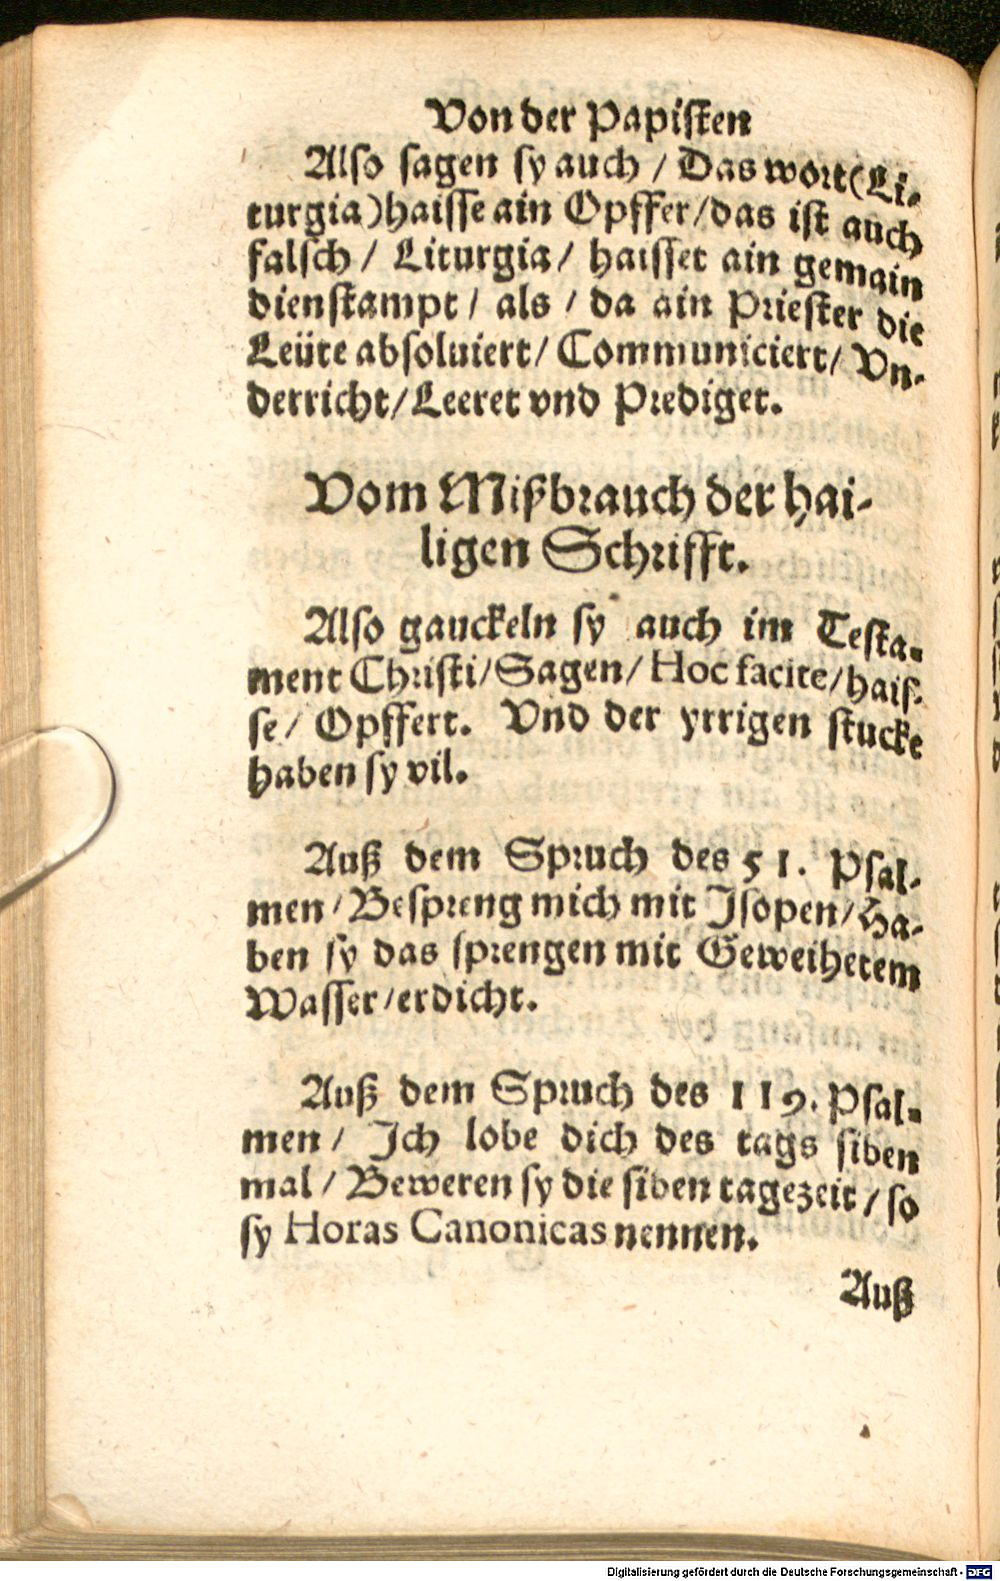 Von der Papisten
Also sagen sy auch / Das wort (Li-
turgia) haisse ain Opffer / das ist auch
falsch / Liturgia / haisset ain gemain
dienstampt / als / da ain Priester die
Leüte absoluiert / Communiciert / Vn-
derricht / Leeret vnd Prediget.
Vom Mißbrauch der hai-
ligen Schrifft.
Also gauckeln sy auch im Testa-
ment Christi / Sagen / Hoc facite / hais-
se / Opffert. Vnd der yrrigen stucke
haben sy vil.
Auß dem Spruch des 51. Psal-
men / Bespreng mich mit Jsopen / Ha-
ben sy das sprengen mit Geweihetem
Wasser / erdicht.
Auß dem Spruch des 119. Psal-
men / Jch lobe dich des tags siben
mal / Beweren sy die siben tagezeit / so
sy Horas Canonicas nennen.
Auß
Digitalisierung gefördert durch die Deutsche Forschungsgemeinschaft - DFG